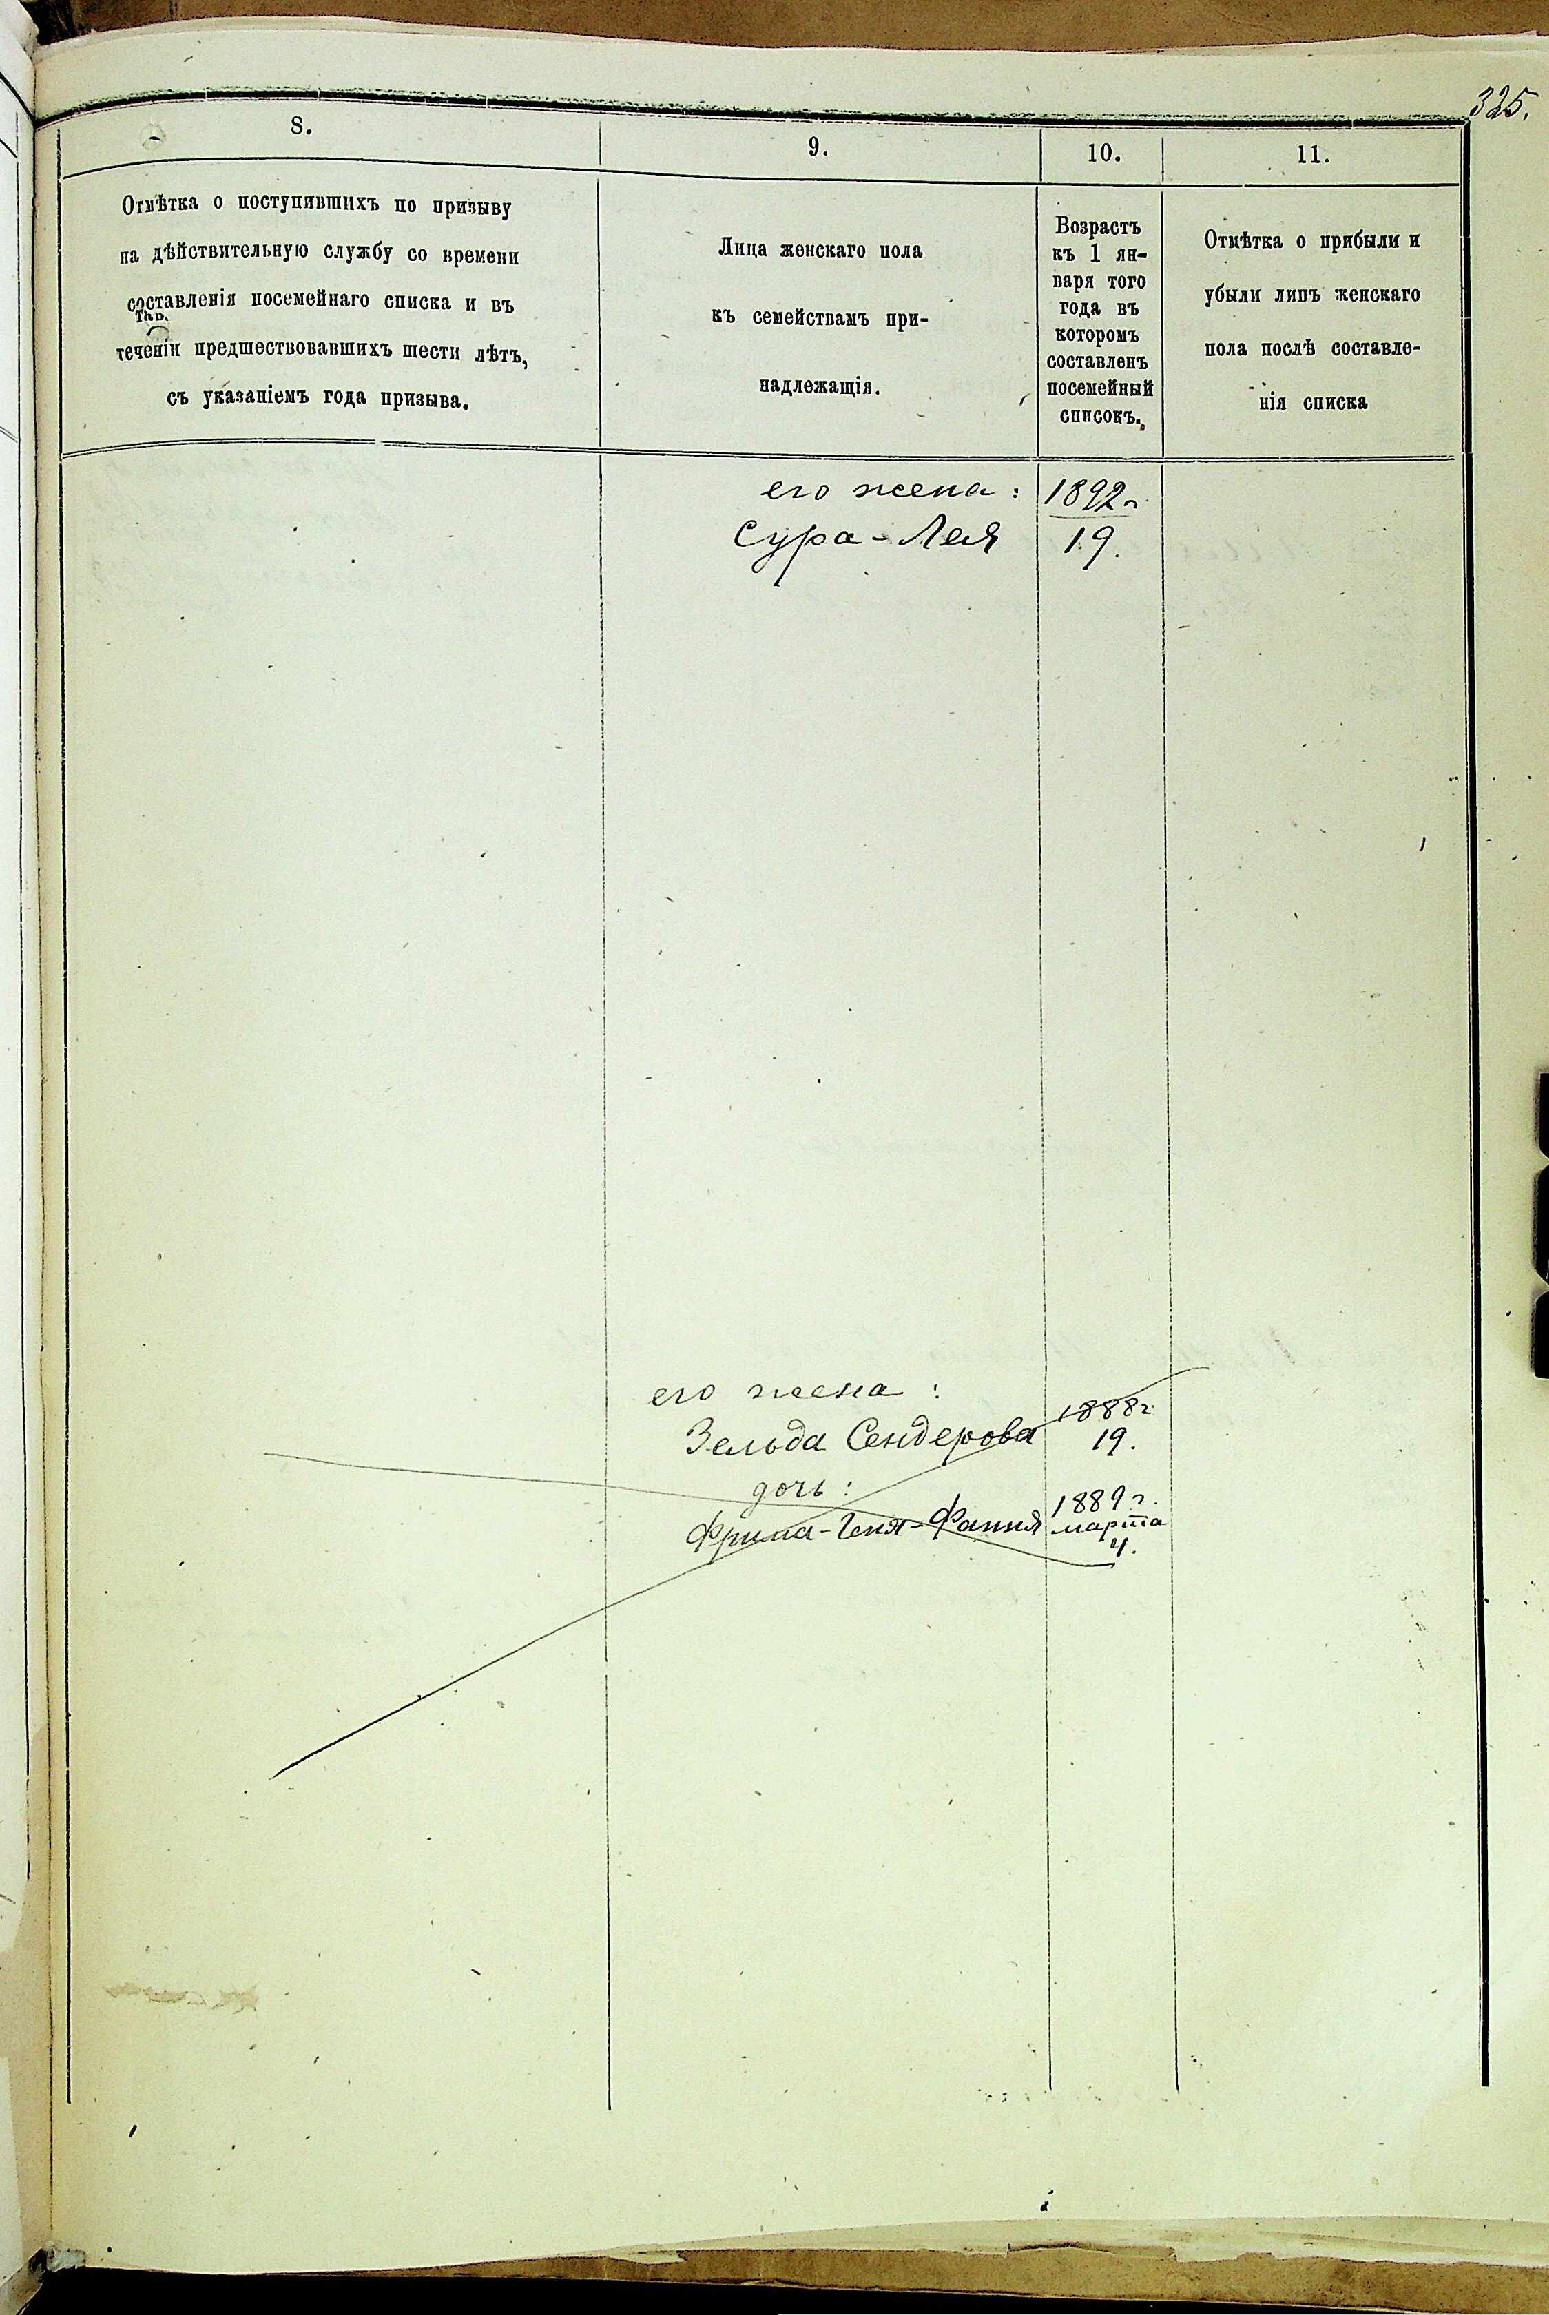 325.
8.
9.
10.
11.
Отмѣтка о поступившихъ по призыву
на дѣйствительную службу со времени
составленія посемейнаго списка и въ
теченіи предшествовавшихъ шести лѣтъ,
съ указаніемъ года призыва.
Лица женскаго пола
къ семействамъ при-
надлежащія.
Возрастъ
къ 1 ян-
варя того
года въ
которомъ
составленъ
посемейный
списокъ.
Отмѣтка о прибыли и
убыли лицъ женскаго
пола послѣ составле-
нія списка
его жена:
1892 г
Сура-Лея
19.
его жена:
1888 г.
Зельда Сендерова
19.
дочь:
1889 г.
Фрума-Геня-Фания
марта
4.